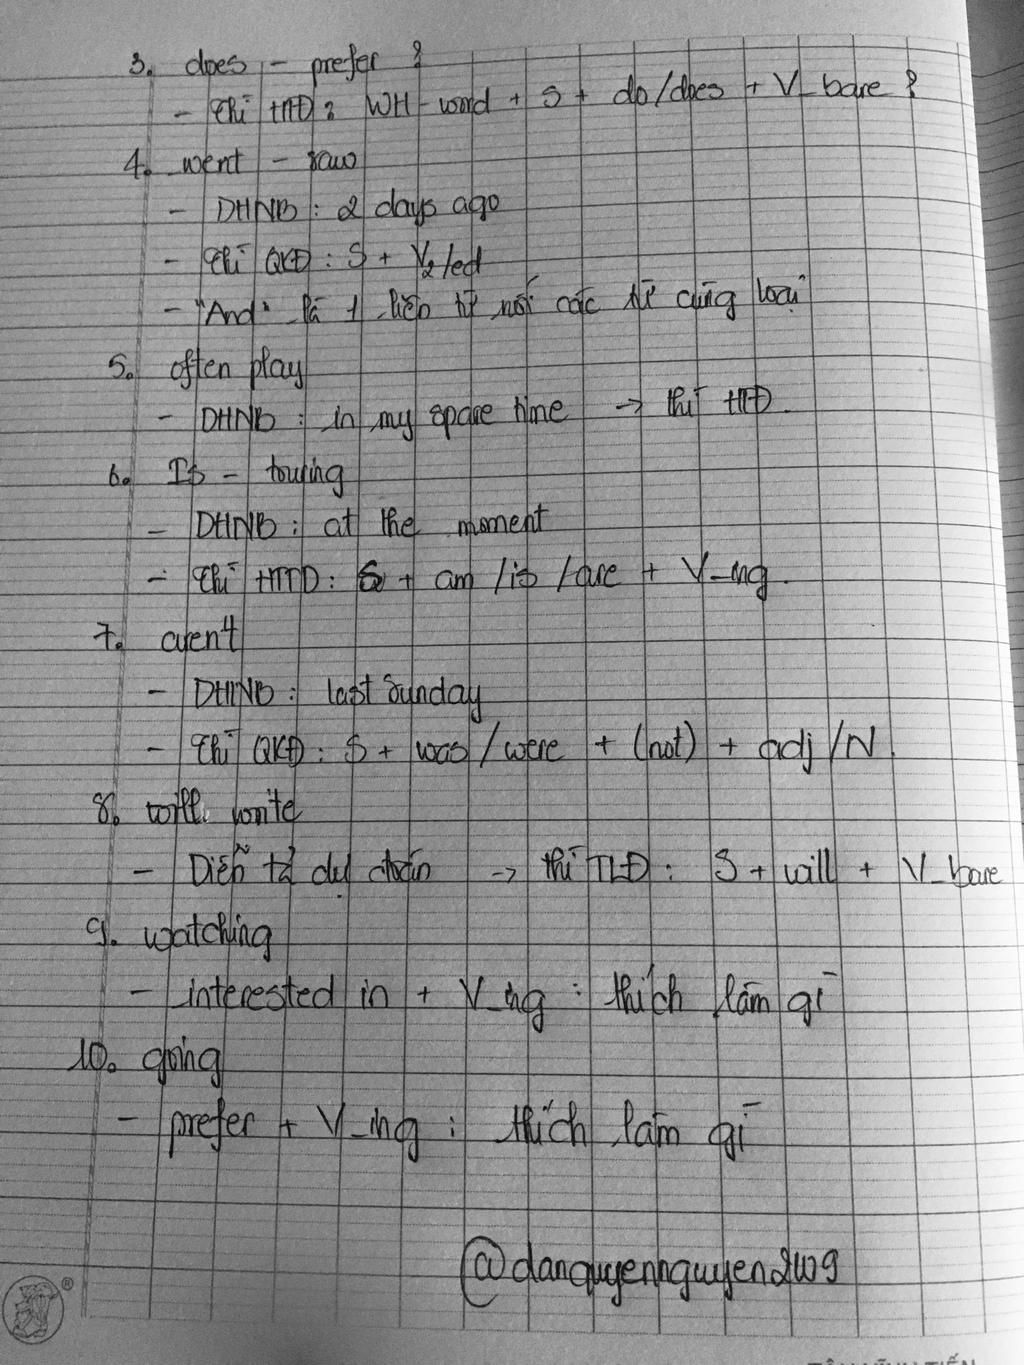 3. does - prefer ?
- Thì HTĐ : WH-word + S + do/does + V_bare ?
4. went - saw
- DHNB : 2 days ago
- Thì QKĐ : S + V2/ed
- "And" là 1 liên từ nối các từ cùng loại
5. often play
- DHNB : in my spare time → thì HTĐ.
6. Is - touring
- DHNB : at the moment
- Thì HTTD : S + am /is /are + V_ing.
7.
- DHNB : last Sunday
- Thì QKĐ : S + was / were + (not) + adj /N.
8. will write
- Diễn tả dự đoán → thì TLĐ : S + will + V_bare
9. watching
- interested in + V_ing : thích làm gì
10. going
- prefer + V_ing : thích làm gì
@danquyennguyen2109